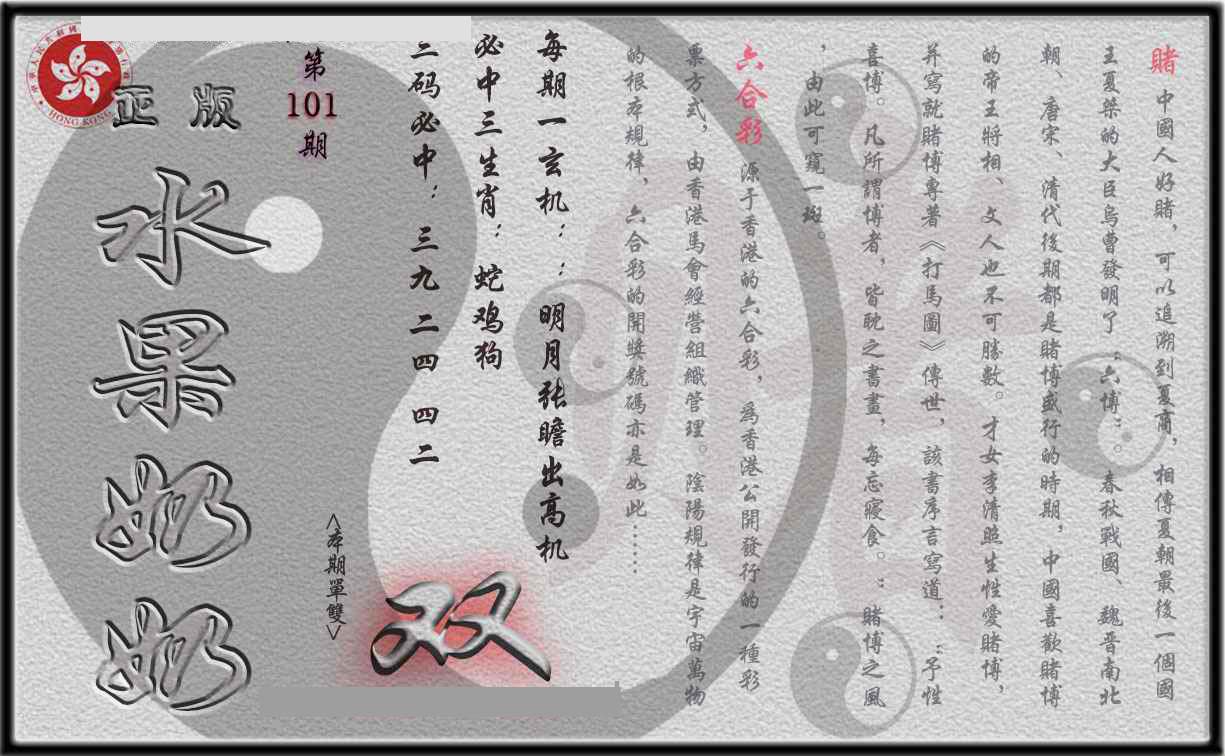 賭 中國人好賭，可以追溯到夏商，相傳夏朝最後一個國
王夏桀的大臣烏曹發明了“六博”。春秋戰國、魏晋南北
朝、唐宋、清代後期都是賭博盛行的時期，中國喜歡賭博
的帝王將相、文人也不可勝數。才女李清照生性愛賭博，
并寫就賭博專著《打馬圖》傳世，該書序言寫道：“予性
喜博。凡所謂博者，皆耽之書晝，每忘寢食。”賭博之風
，由此可窺一斑。
六合彩 源于香港的六合彩，為香港公開發行的一種彩
票方式，由香港馬會經營組織管理。陰陽規律是宇宙萬物
的根本規律，六合彩的開獎號碼亦是如此……
每期一玄机：：明月张瞻出高机
必中三生肖：蛇鸡狗
三码必中：三九 二四 四二
第101期
<本期單雙>
双
正版
水果奶奶
HONG KONG